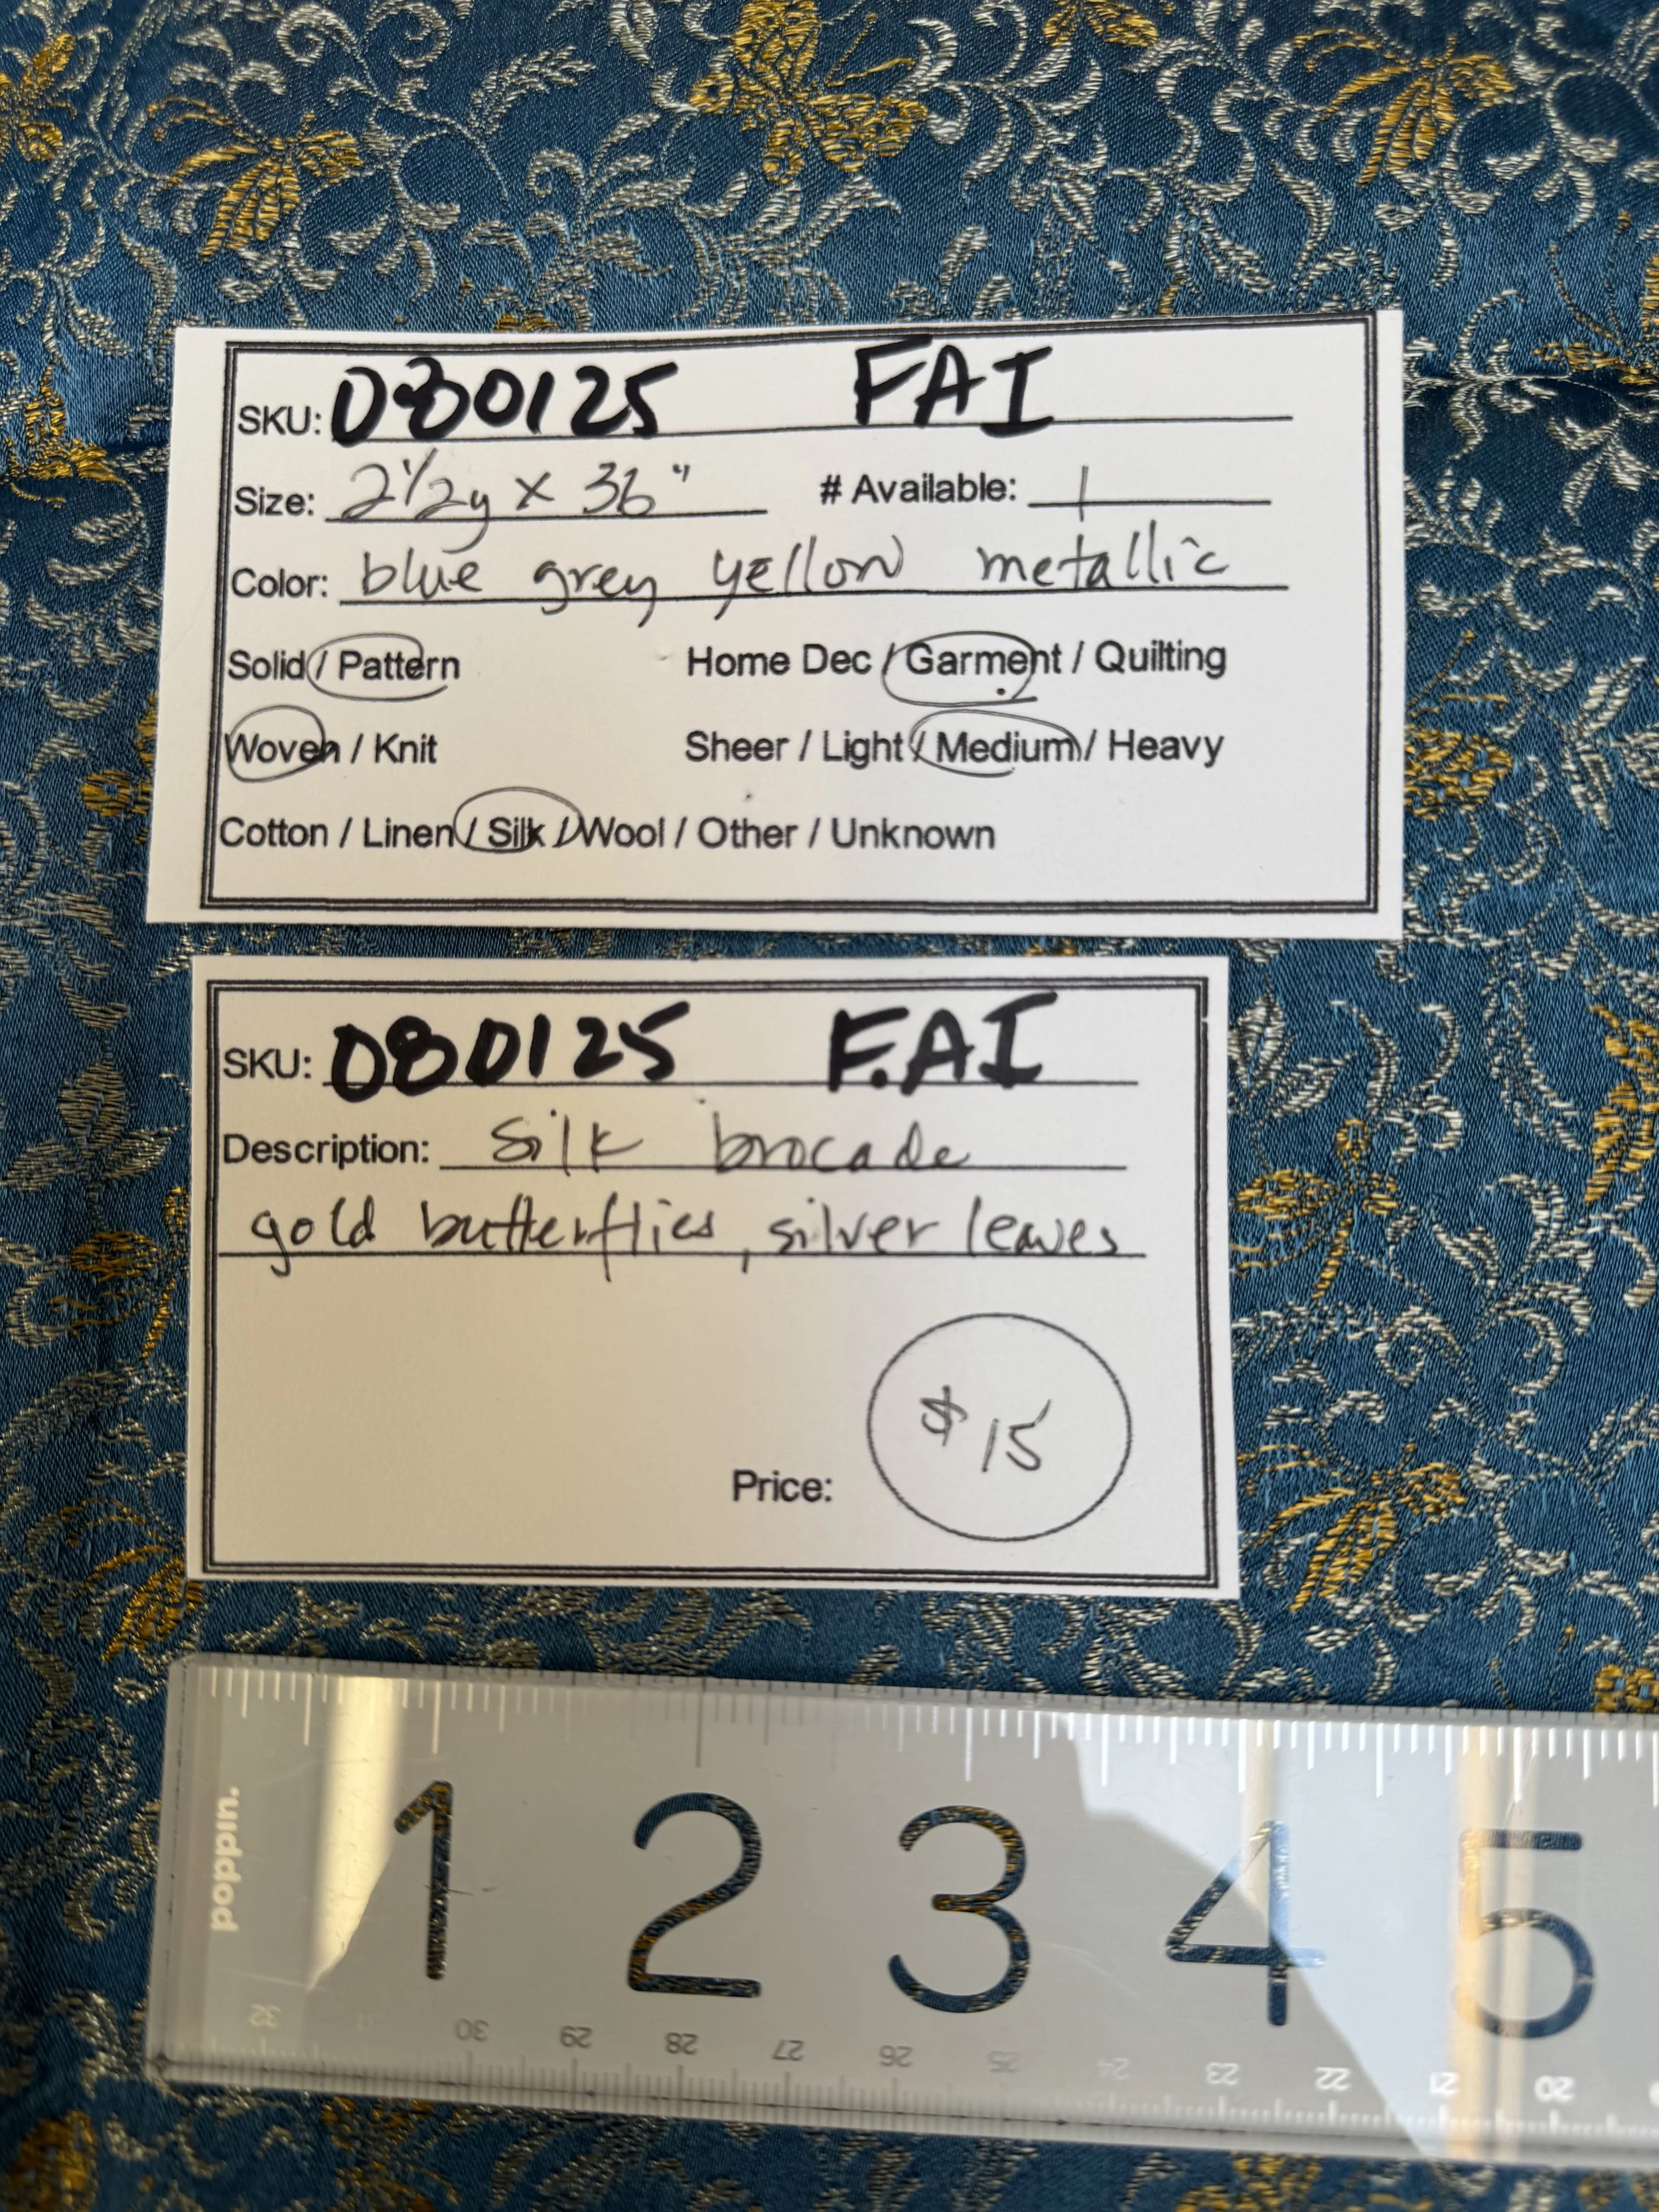 SKU: 080125 FAI
Size: 2 1/2y x 36" # Available: 1
Color: blue grey yellow metallic
Solid / Pattern Home Dec / Garment / Quilting
Woven / Knit Sheer / Light / Medium / Heavy
Cotton / Linen / Silk / Wool / Other / Unknown
SKU: 080125 F.AI
Description: silk brocade
gold butterflies, silver leaves
$15
Price:
poppin.
1 2 3 4 5
32 31 30 29 28 27 26 25 24 23 22 21 20